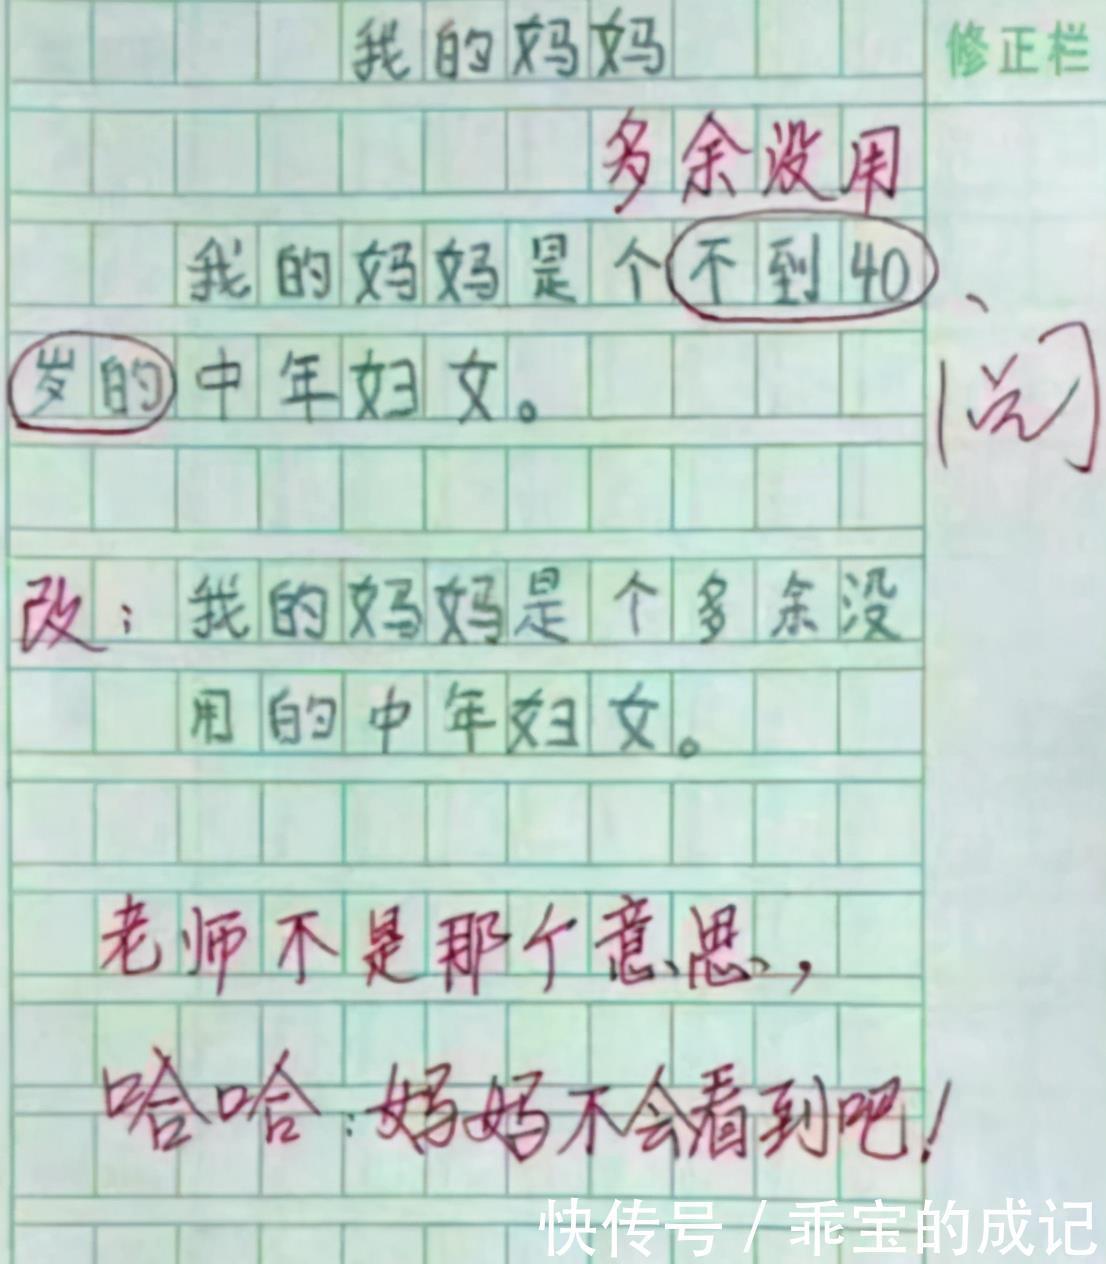 我的妈妈
修正栏
多余没用
我的妈妈是个不到40
岁的中年妇女。
阅
改：我的妈妈是个多余没
用的中年妇女。
老师不是那个意思，
哈哈：妈妈不会看到吧！
快传号/乖宝的成记